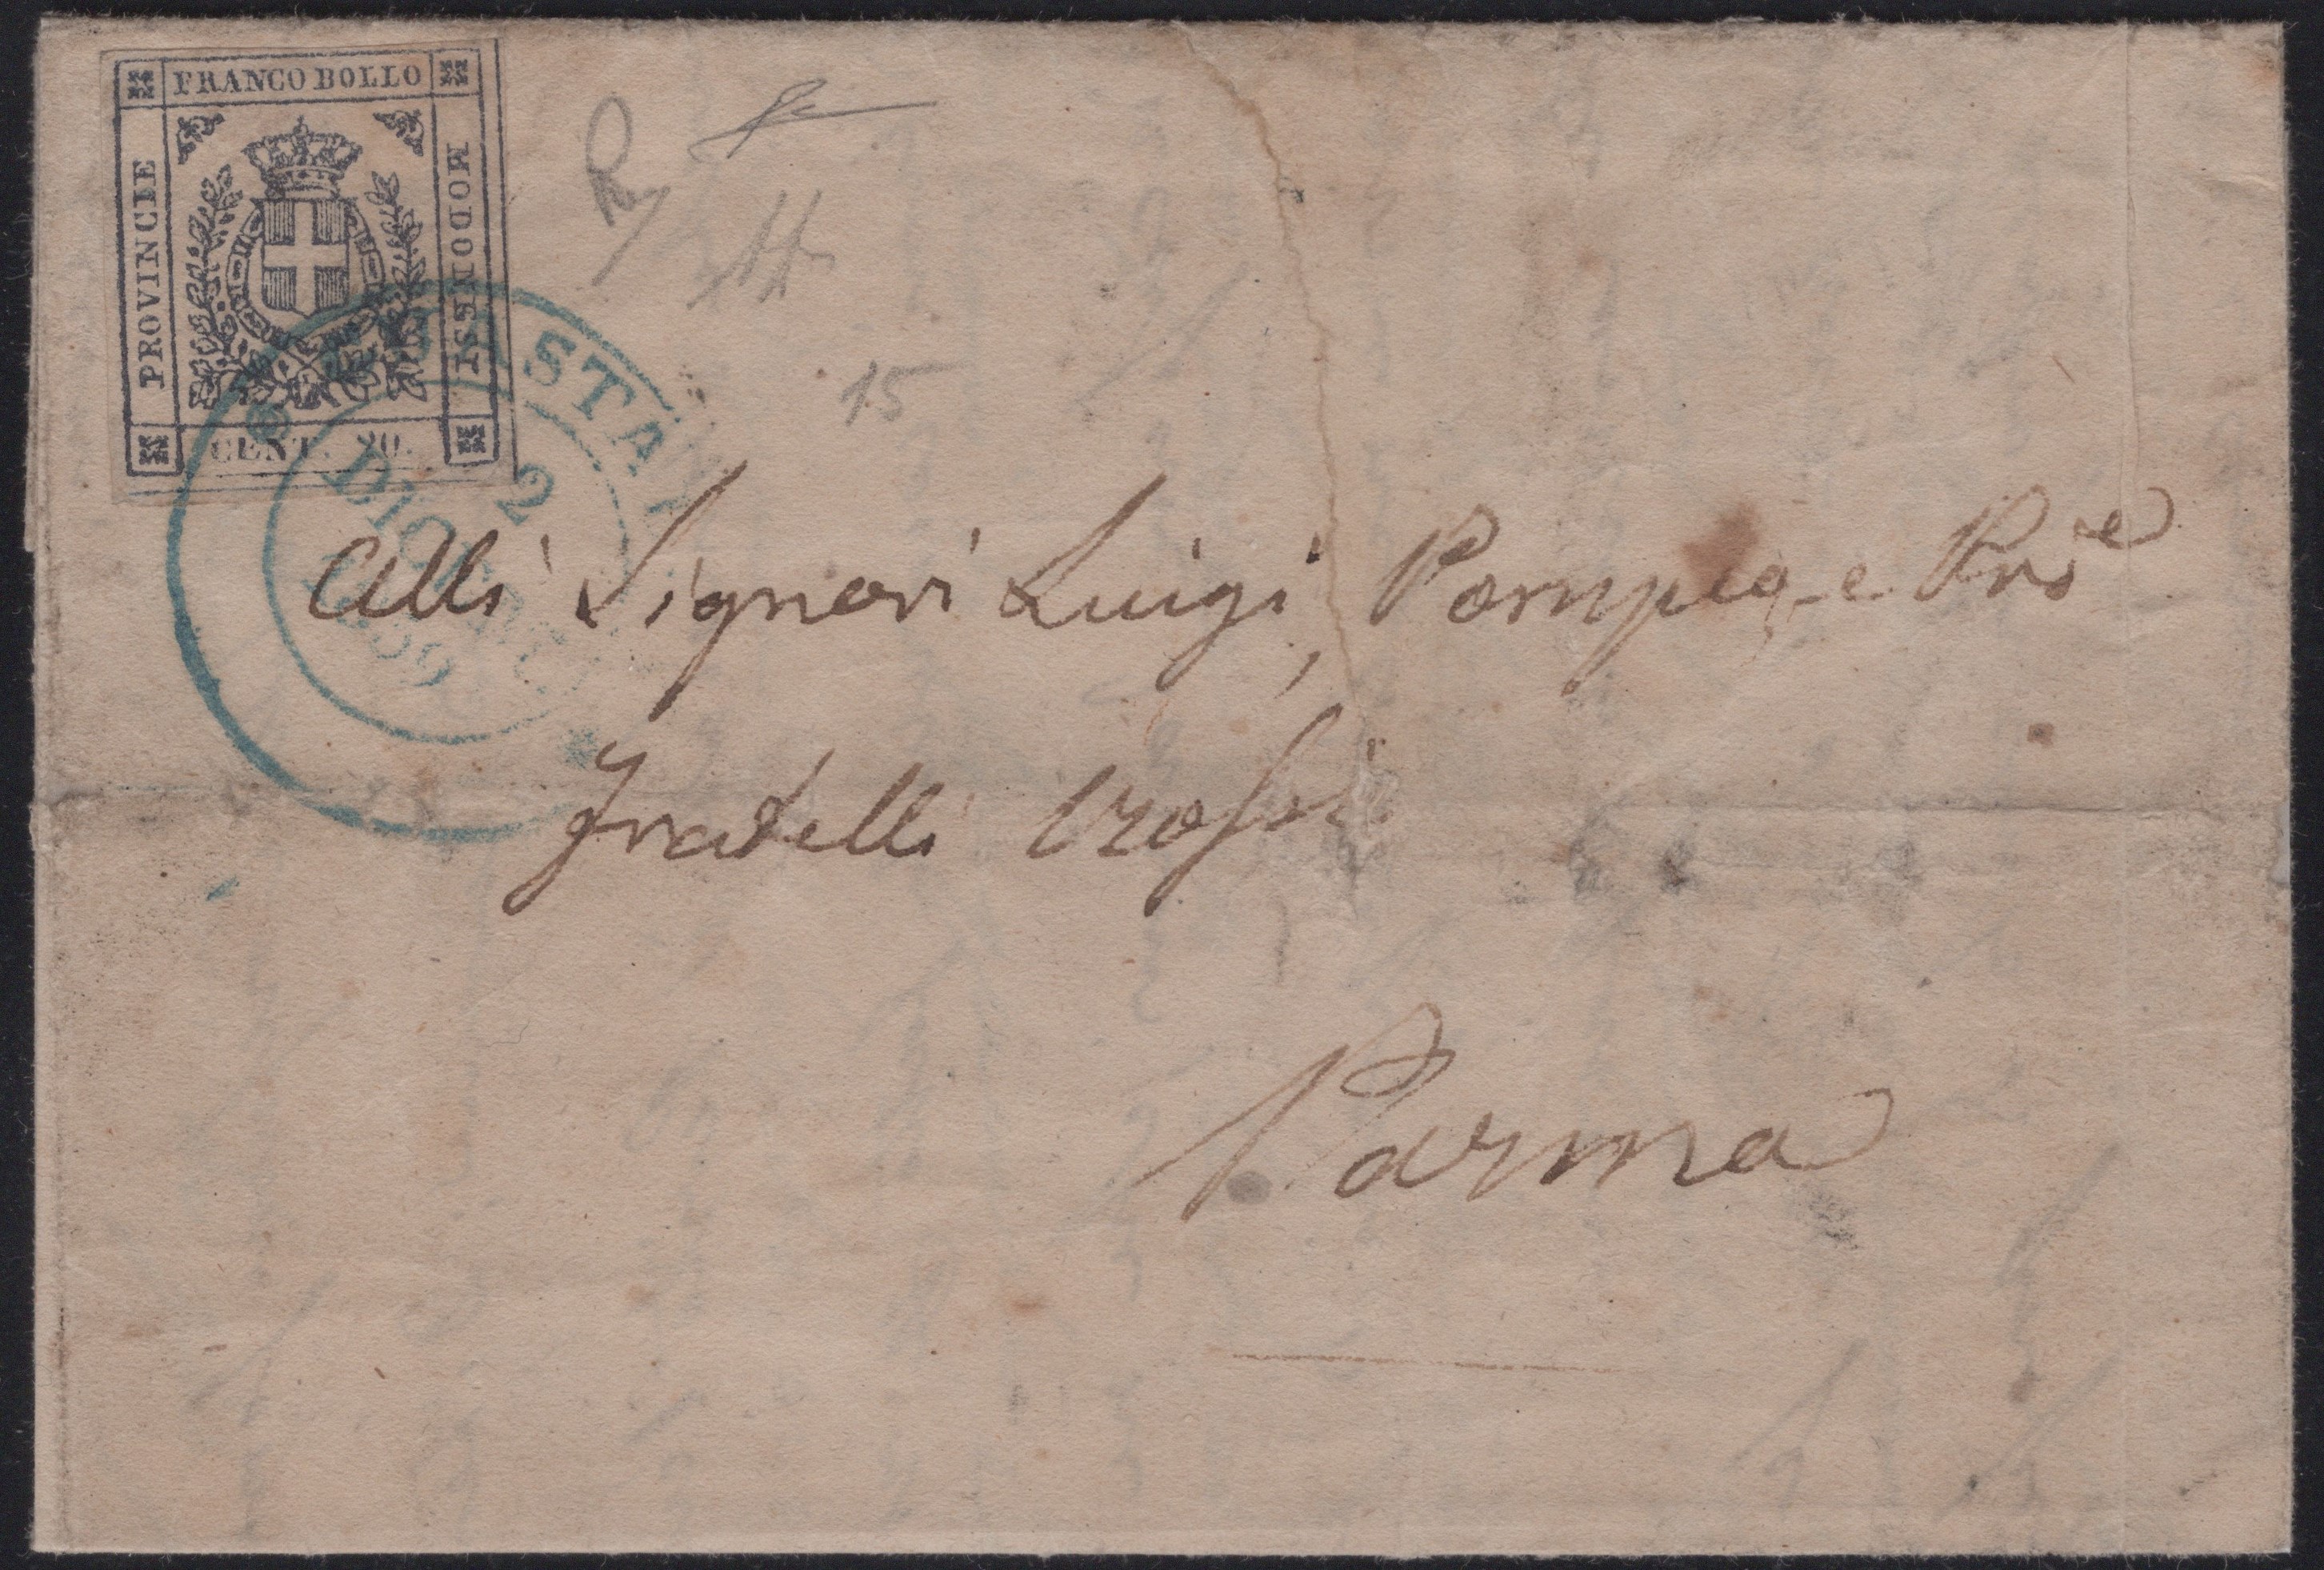 FRANCO BOLLO
PROVINCIE
MODONESI
CENT. 20.
2
DIC
15
Alli Signori Luigi, Pompeo e
Fratelli Rossi
Parma